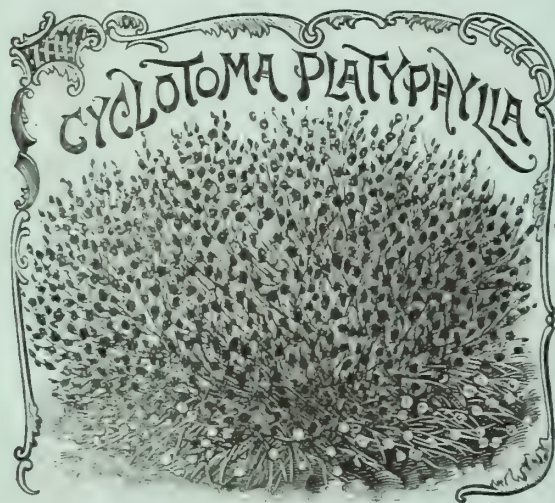 CYCLOTOMA PLATYPHYLLA